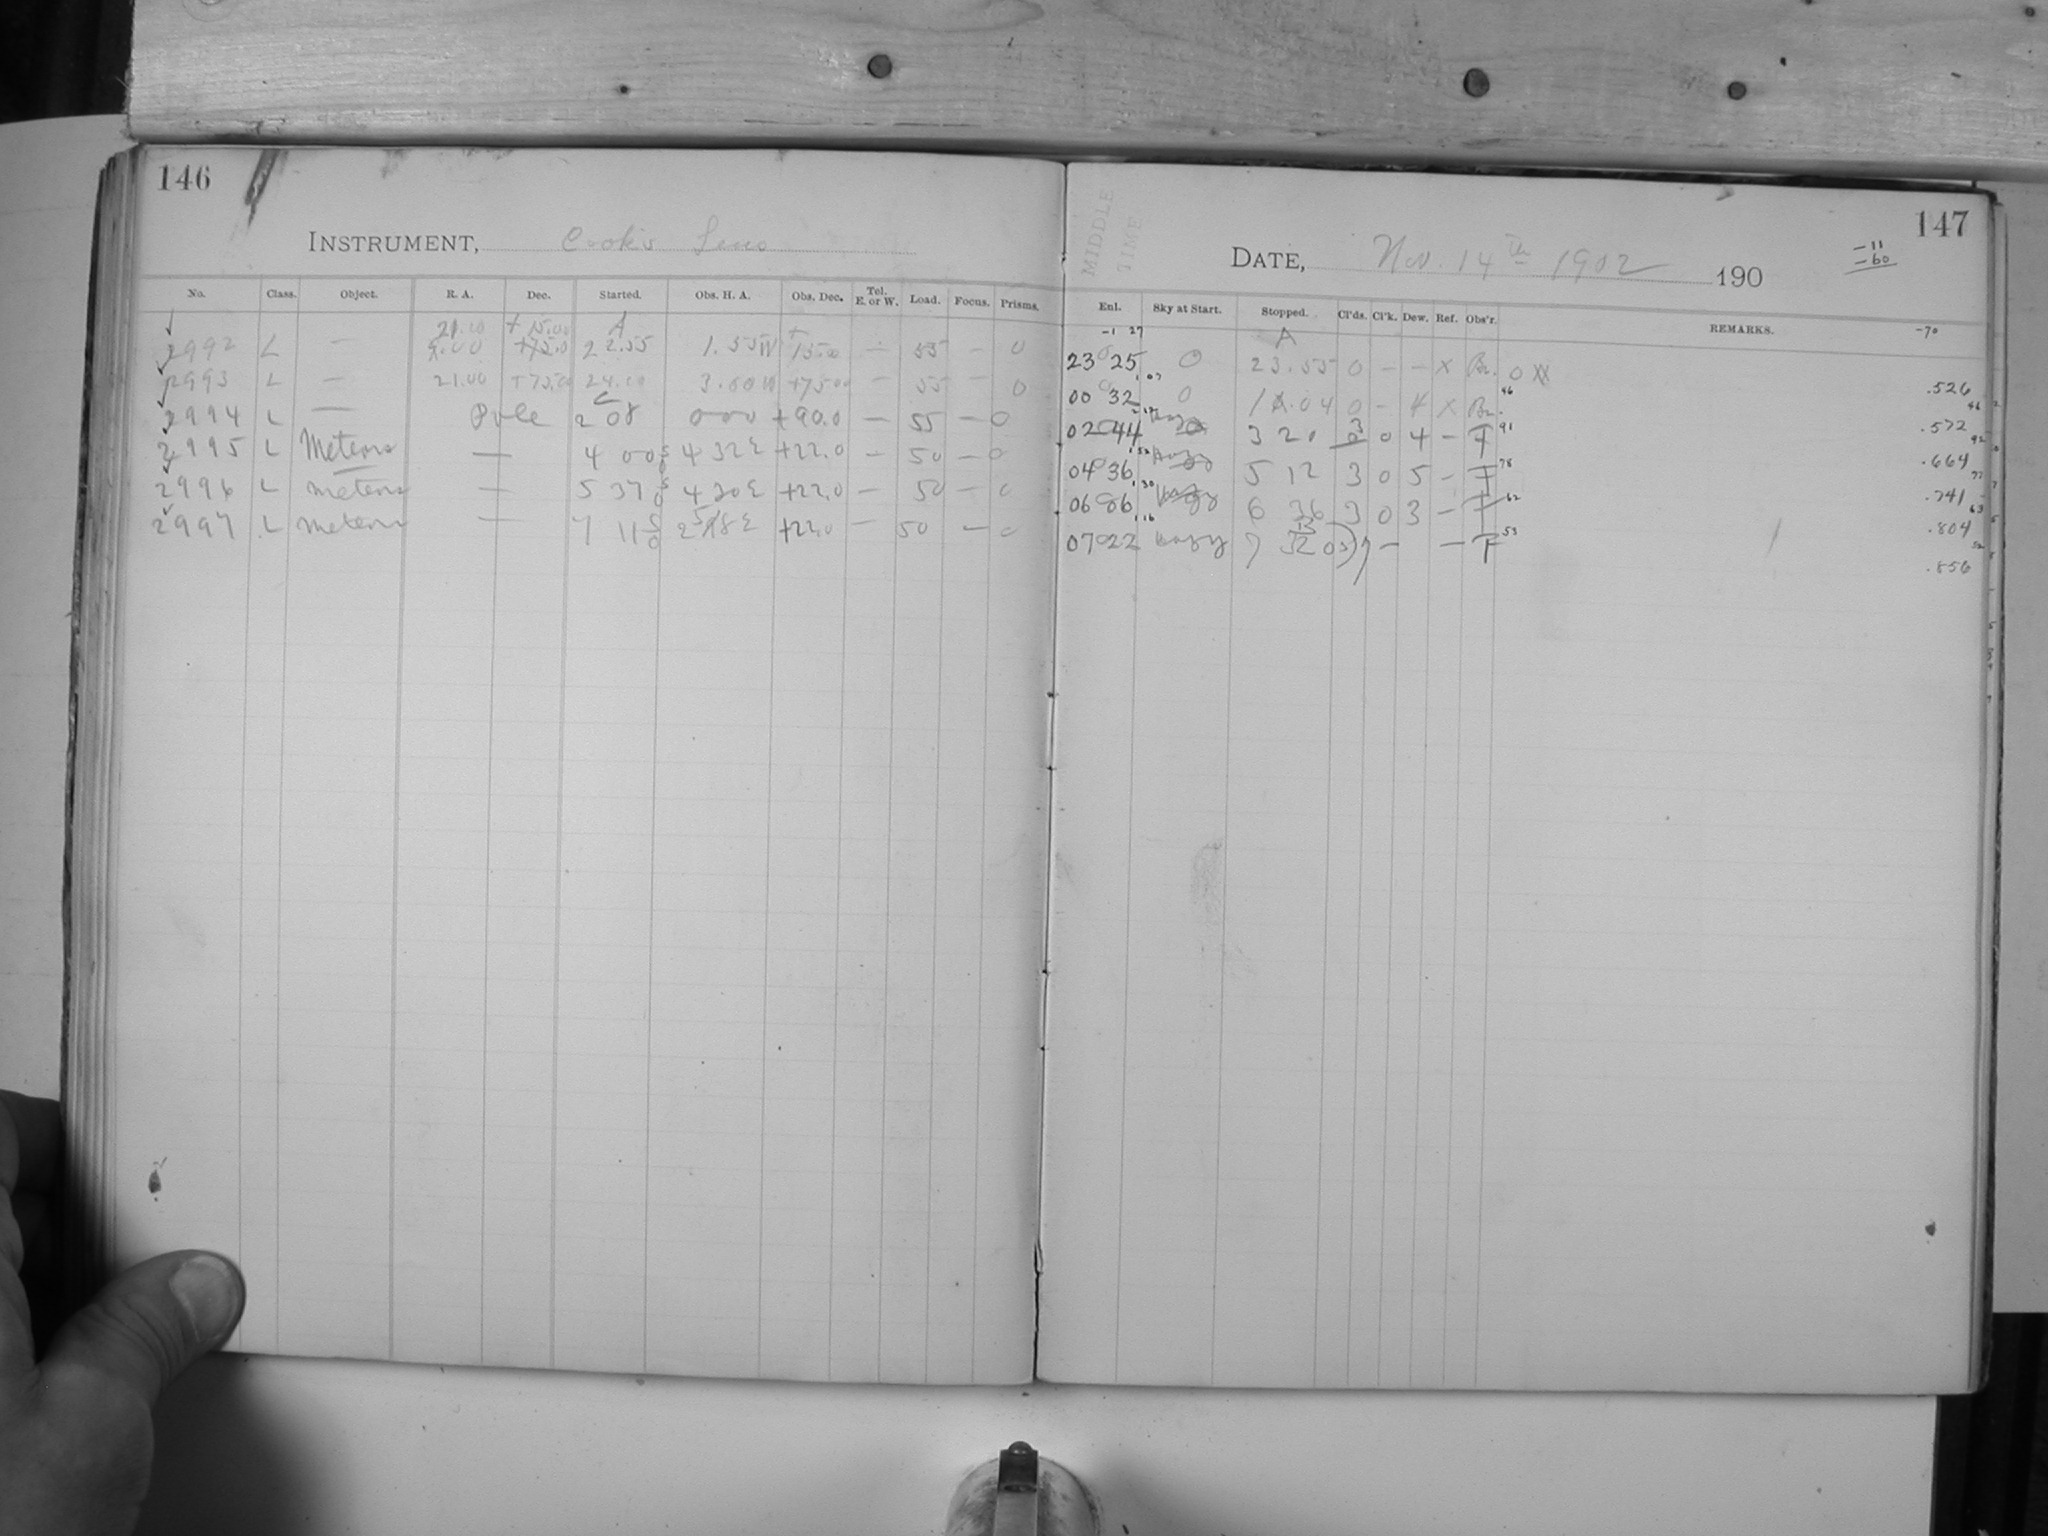 146
INSTRUMENT, Cooke Lens
No. Class. Object. R. A. Dec. Started. Obs. H. A. Obs. Dec. Tel. E. or W. Load. Focus. Prisms.
21.00 +15.00 A +
2992 L — +75.0 22.55 1.55W 15.0 — 55 — 0
2993 L — 21.00 +75.0 24.00 3.00W +75.00 — 55 — 0
2994 L — Pole 2 08 000 +90.0 — 55 — 0
2995 L Meteors — 4 00 4 32 E +22.0 — 50 — 0
2996 L Meteors — 5 37 4 20 E +22.0 — 50 — 0
2997 L Meteors — 7 11 +22.0 — 50 — 0
MIDDLE TIME
147
DATE, Nov. 14th 1902 190
-11
-60
Enl. Sky at Start. Stopped. Cl'ds. Cl'k. Dew. Ref. Obs'r. REMARKS. -70
-1 27 A
23 25 0 23.55 0 — — x Br. 0
.526
1.07
00 32 0 0 — x Br. 46
.572
02 44 3 20 0 4 — F 91
.664
1.52
04 36 5 12 3 0 5 — F 78
.741
1.30
06 06 6 36 3 0 3 — F 62
.804
1.16
07 22 hazy 7 — — F 53
.856